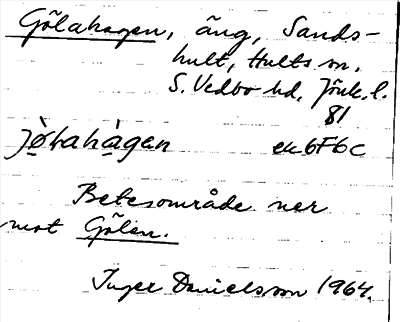 Gölahagen, äng, Sands-
hult, Hults sn.
S. Vedbo hd, Jönk. l.
81
ek 6F6c
Betesområde ner
mot Gölen.
Inger Danielsson 1964.